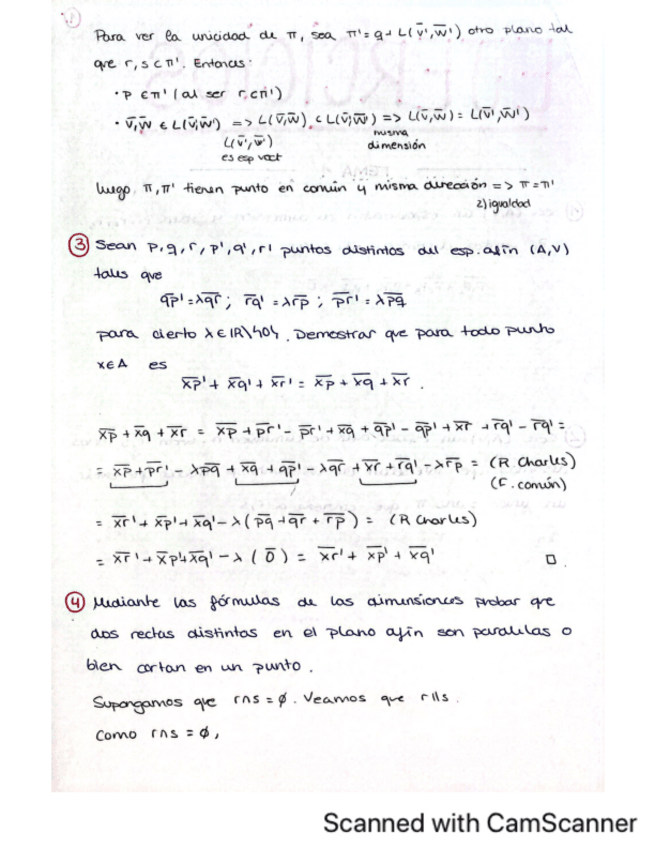 Para ver la unicidad de π, sea π' = q + L(v̄', w̄') otro plano tal
que r, s ⊂ π'. Entonces:
· p ∈ π' (al ser r ⊂ π')
· v̄, w̄ ∈ L(v̄', w̄') => L(v̄, w̄) ⊂ L(v̄', w̄') => L(v̄, w̄) = L(v̄', w̄')
L(v̄', w̄') es esp vect
misma dimensión
luego π, π' tienen punto en común y misma dirección => π = π'
2) igualdad
③ Sean p, q, r, p', q', r' puntos distintos del esp. afín (A, V)
tales que
q̅p̅' = λq̅r̅ ; r̅q̅' = λr̅p̅ ; p̅r̅' = λp̅q̅
para cierto λ ∈ ℝ\{0}. Demostrar que para todo punto
x ∈ A es
x̅p̅' + x̅q̅' + x̅r̅' = x̅p̅ + x̅q̅ + x̅r̅.
x̅p̅ + x̅q̅ + x̅r̅ = x̅p̅ + p̅r̅' - p̅r̅' + x̅q̅ + q̅p̅' - q̅p̅' + x̅r̅ + r̅q̅' - r̅q̅' =
= x̅p̅ + p̅r̅' - λp̅q̅ + x̅q̅ + q̅p̅' - λq̅r̅ + x̅r̅ + r̅q̅' - λr̅p̅ = (R. Charles)
(F. común)
= x̅r̅' + x̅p̅' + x̅q̅' - λ(p̅q̅ + q̅r̅ + r̅p̅) = (R Charles)
= x̅r̅' + x̅p̅' + x̅q̅' - λ(0̅) = x̅r̅' + x̅p̅' + x̅q̅' □.
④ Mediante las fórmulas de las dimensiones probar que
dos rectas distintas en el plano afín son paralelas o
bien cortan en un punto.
Supongamos que r∩s = ∅. Veamos que r||s.
Como r∩s = ∅,
Scanned with CamScanner